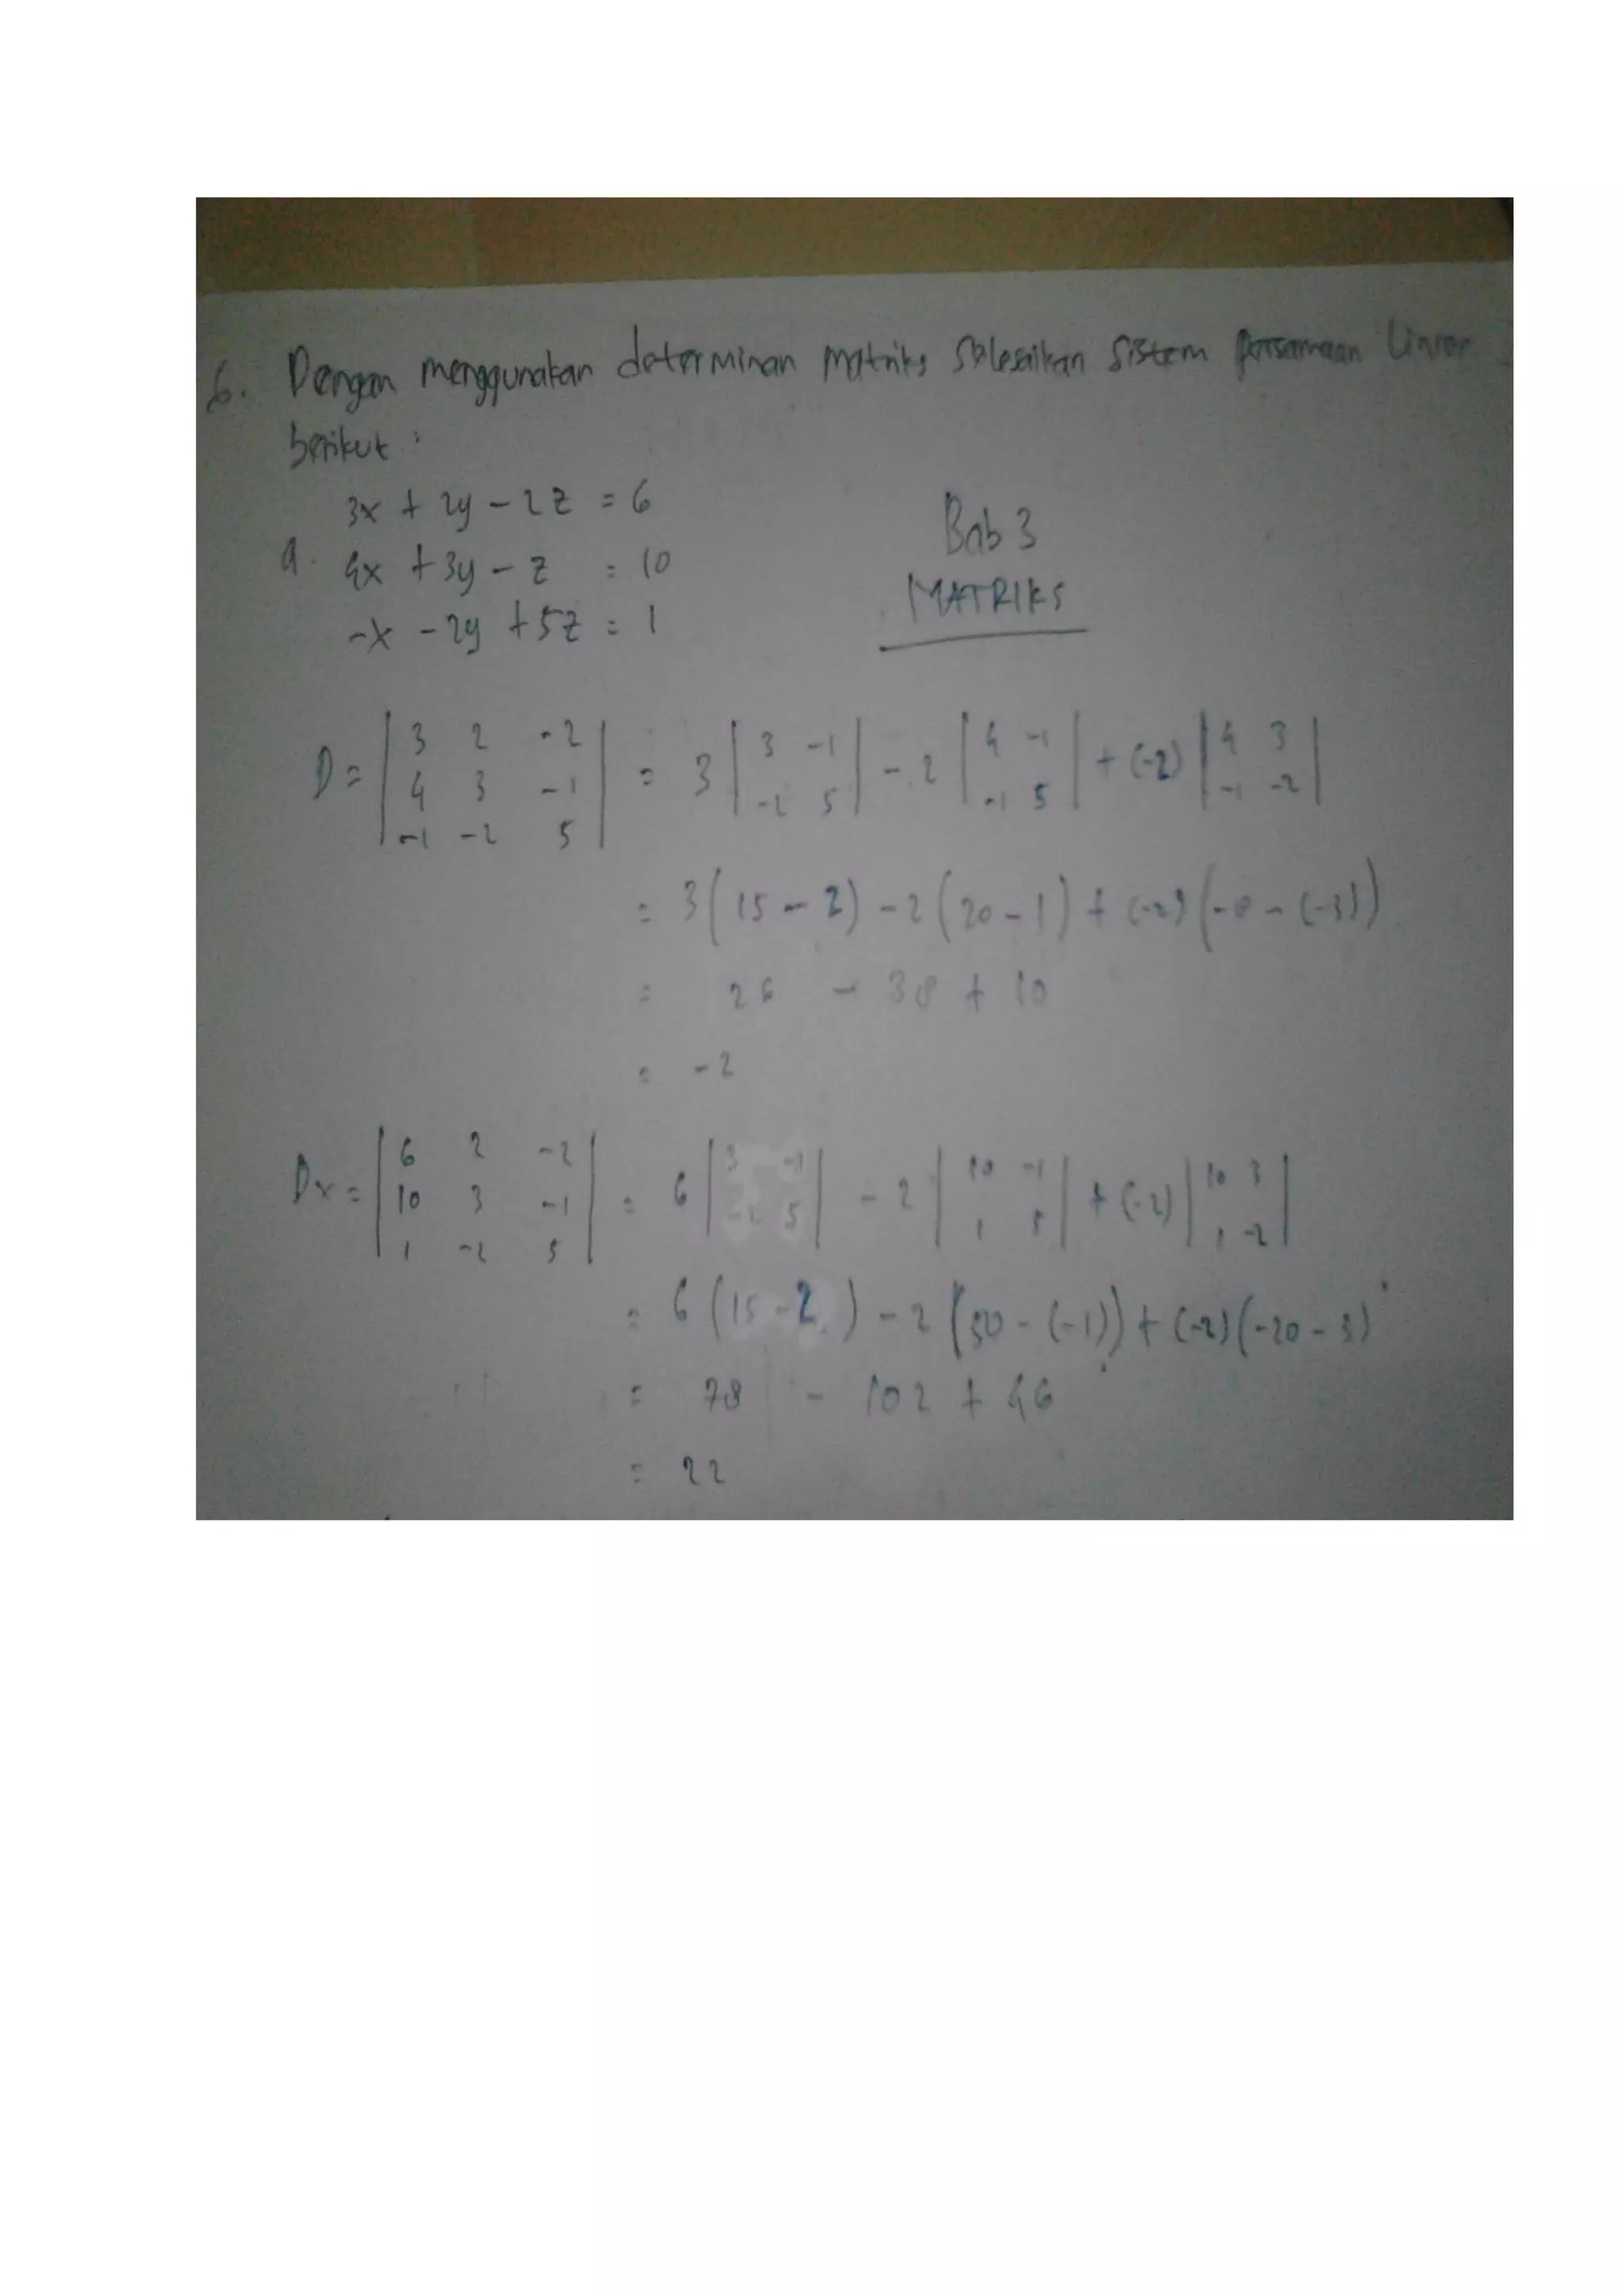 6. Dengan menggunakan determinan matriks selesaikan sistem persamaan linier
berikut :
3x + 2y - 2z = 6
a. 4x + 3y - z = 10
-x - 2y + 5z = 1
Bab 3
MATRIKS
D = | 3 2 -2 | = 3 | 3 -1 | - 2 | 4 -1 | + (-2) | 4 3 |
| 4 3 -1 | | -2 5 | | -1 5 | | -1 -2 |
| -1 -2 5 |
= 3 (15 - 2) - 2 (20 - 1) + (-2) (-8 - (-3))
= 26 - 38 + 10
= -2
Dx = | 6 2 -2 | = 6 | 3 -1 | - 2 | 10 -1 | + (-2) | 10 3 |
| 10 3 -1 | | -2 5 | | 1 5 | | 1 -2 |
| 1 -2 5 |
= 6 (15 - 2) - 2 (50 - (-1)) + (-2) (-20 - 3)
= 78 - 102 + 46
= 22